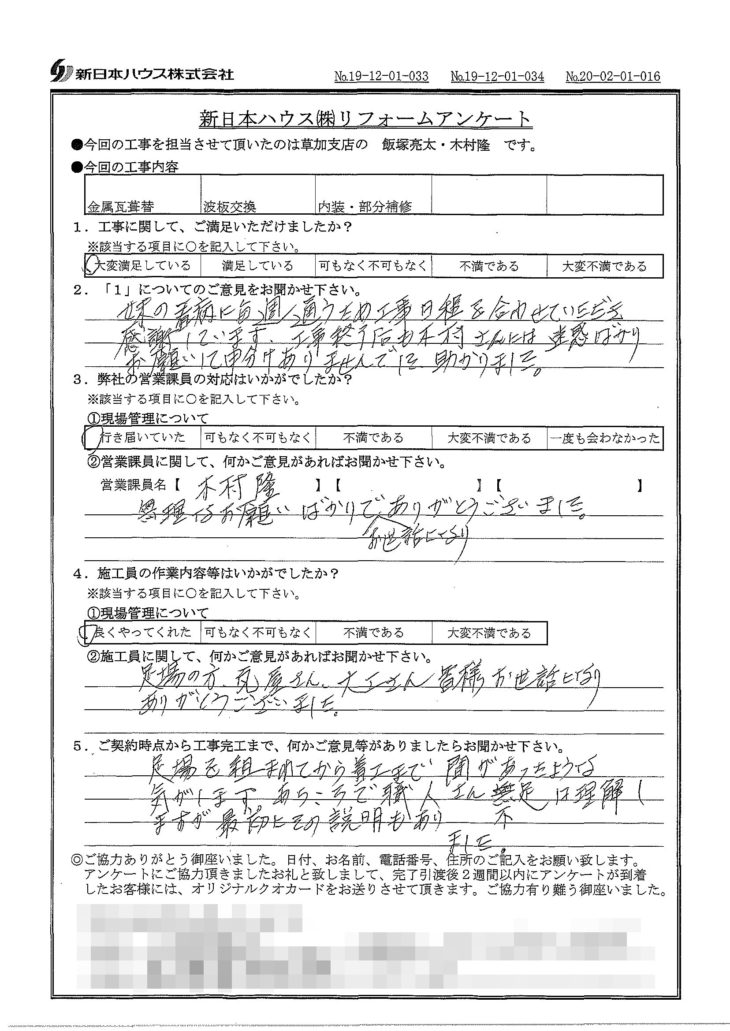 新日本ハウス株式会社
№19-12-01-033 №19-12-01-034 №20-02-01-016
新日本ハウス㈱リフォームアンケート
●今回の工事を担当させて頂いたのは草加支店の 飯塚亮太・木村隆 です。
●今回の工事内容
金属瓦葺替 波板交換 内装・部分補修
1．工事に関して、ご満足いただけましたか？
※該当する項目に○を記入して下さい。
大変満足している 満足している 可もなく不可もなく 不満である 大変不満である
2．「1」についてのご意見をお聞かせ下さい。
妹の看病に毎週通うため工事日程を合わせていただき
感謝しています、工事終了后も木村さんには迷惑ばかり
お願いして申分けありませんでした 助かりました。
3．弊社の営業課員の対応はいかがでしたか？
※該当する項目に○を記入して下さい。
①現場管理について
行き届いていた 可もなく不可もなく 不満である 大変不満である 一度も会わなかった
②営業課員に関して、何かご意見があればお聞かせ下さい。
営業課員名【 木村隆 】【 】【
無理なお願いばかりでありがとうございました。
お世話になり
4．施工員の作業内容等はいかがでしたか？
※該当する項目に○を記入して下さい。
①現場管理について
良くやってくれた 可もなく不可もなく 不満である 大変不満である
②施工員に関して、何かご意見があればお聞かせ下さい。
足場の方、瓦屋さん、大工さん 皆様お世話になり
ありがとうございました。
5．ご契約時点から工事完工まで、何かご意見等がありましたらお聞かせ下さい。
足場を組まれてから着工まで間があったような
気がします。あちこちで職人さん無足は理解し
不
ますが最初にその説明もあり
ました。
◎ご協力ありがとう御座いました。日付、お名前、電話番号、住所のご記入をお願い致します。
アンケートにご協力頂きましたお礼と致しまして、完了引渡後２週間以内にアンケートが到着
したお客様には、オリジナルクオカードをお送りさせて頂きます。ご協力有り難う御座いました。